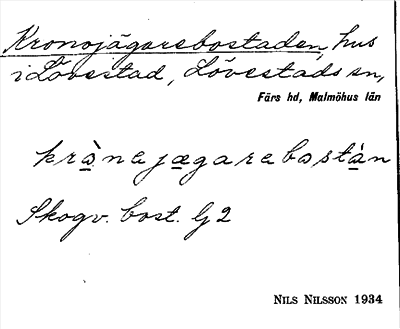 Kronojägarebostaden, hus
i Lövestad, Lövestads sn,
Färs hd, Malmöhus län
krò̱nejæ̱garebostà̱n
Skogv. bost. G 2
NILS NILSSON 1934